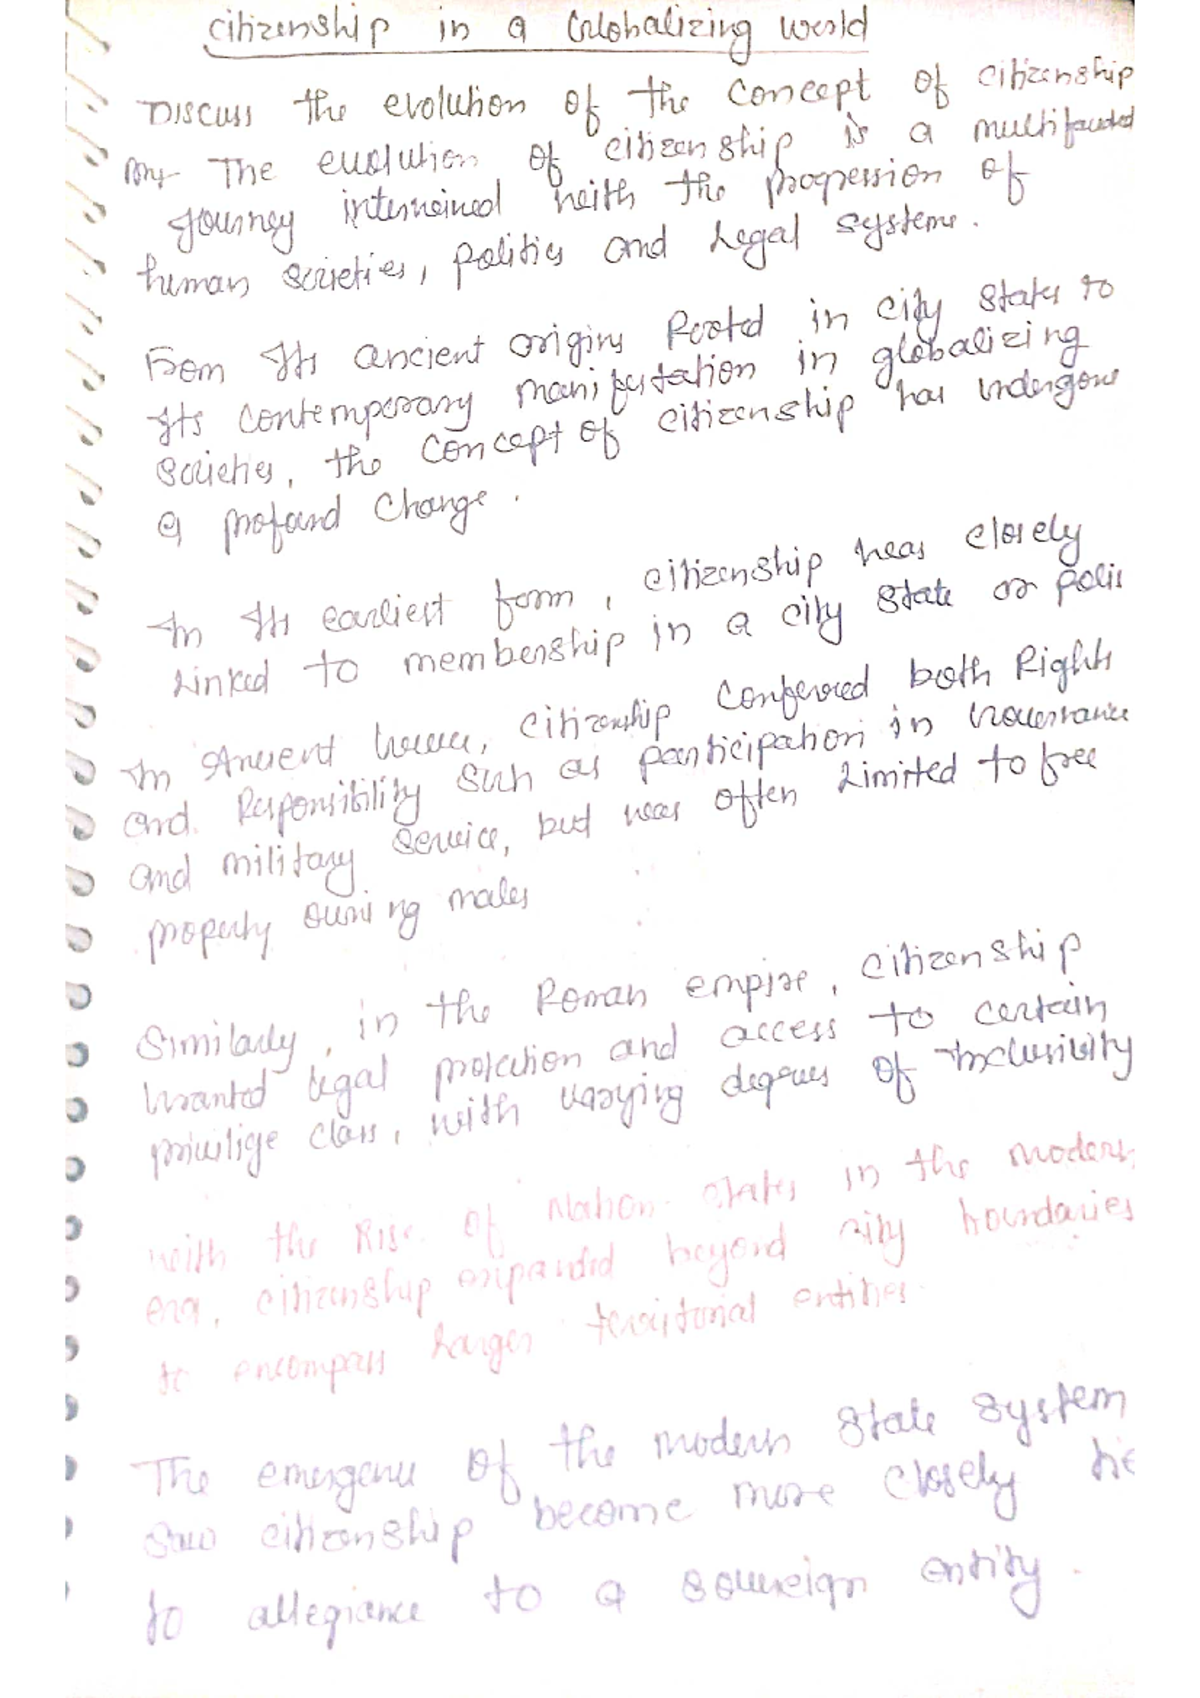 Citizenship in a Globalizing World
Discuss the evolution of the concept of citizenship
Ans The evolution of citizenship is a multifauded
Journey interwined with the progression of
human societies, politics and Legal systems.
From Its ancient origins Rooted in city states to
Its contemporary manifestation in globalizing
societies, the concept of citizenship has undergone
a profound change.
In Its earliest form, citizenship was closely
Linked to membership in a city state or polis
In Ancient Greece, citizenship conferred both Rights
and Responsibility such as participation in Governance
and military service, but was often Limited to free
property owning males
Similarly, in the Roman empire, citizenship
Granted legal protection and access to certain
privilige class, with varying degrees of Inclusivity
with the Rise of Nation-states in the modern
era, citizenship expanded beyond city boundaries
to encompass Larger territorial entities.
The emergence of the modern state system
saw citizenship become more closely tie
to allegiance to a sovereign entity.